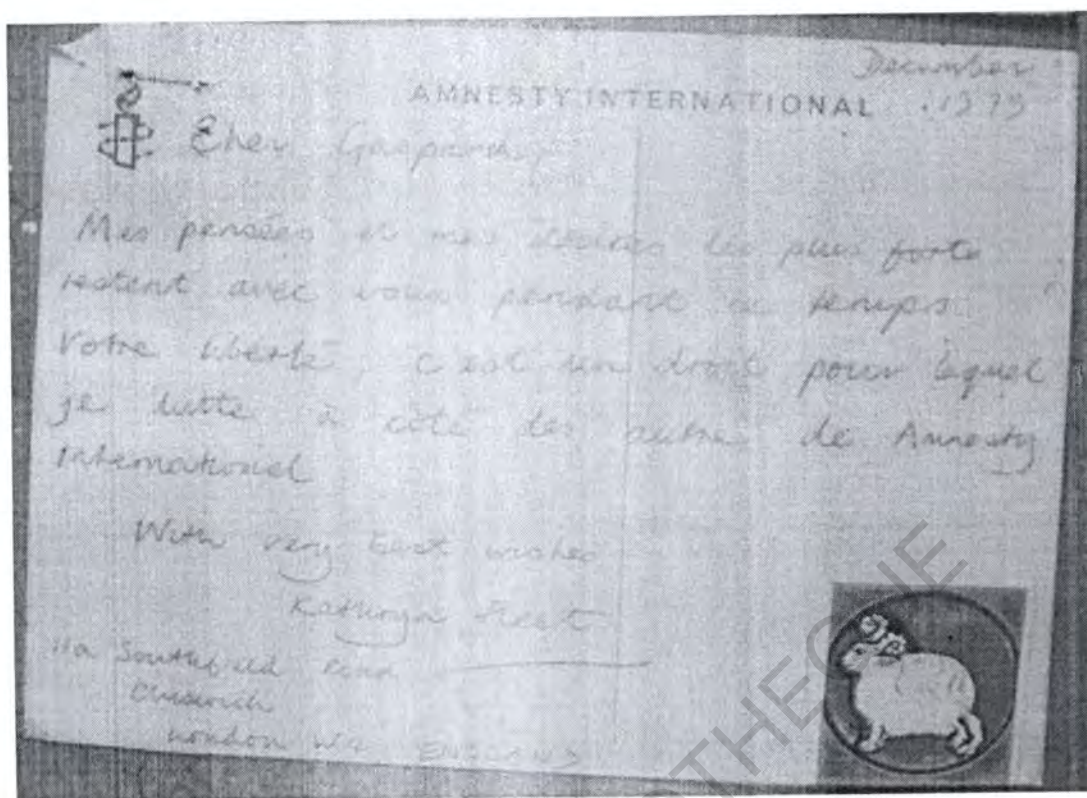 December
AMNESTY INTERNATIONAL . 1979
Cher Gaspard,
Mes pensées et mes désirs les plus forts
restent avec vous pendant ce temps.
Votre liberté, c'est un droit pour lequel
je lutte à côté des autres de Amnesty
International
With very best wishes
Kathryn
11a Southfield Road
Chiswick
London W4 ENGLAND
THEQUE